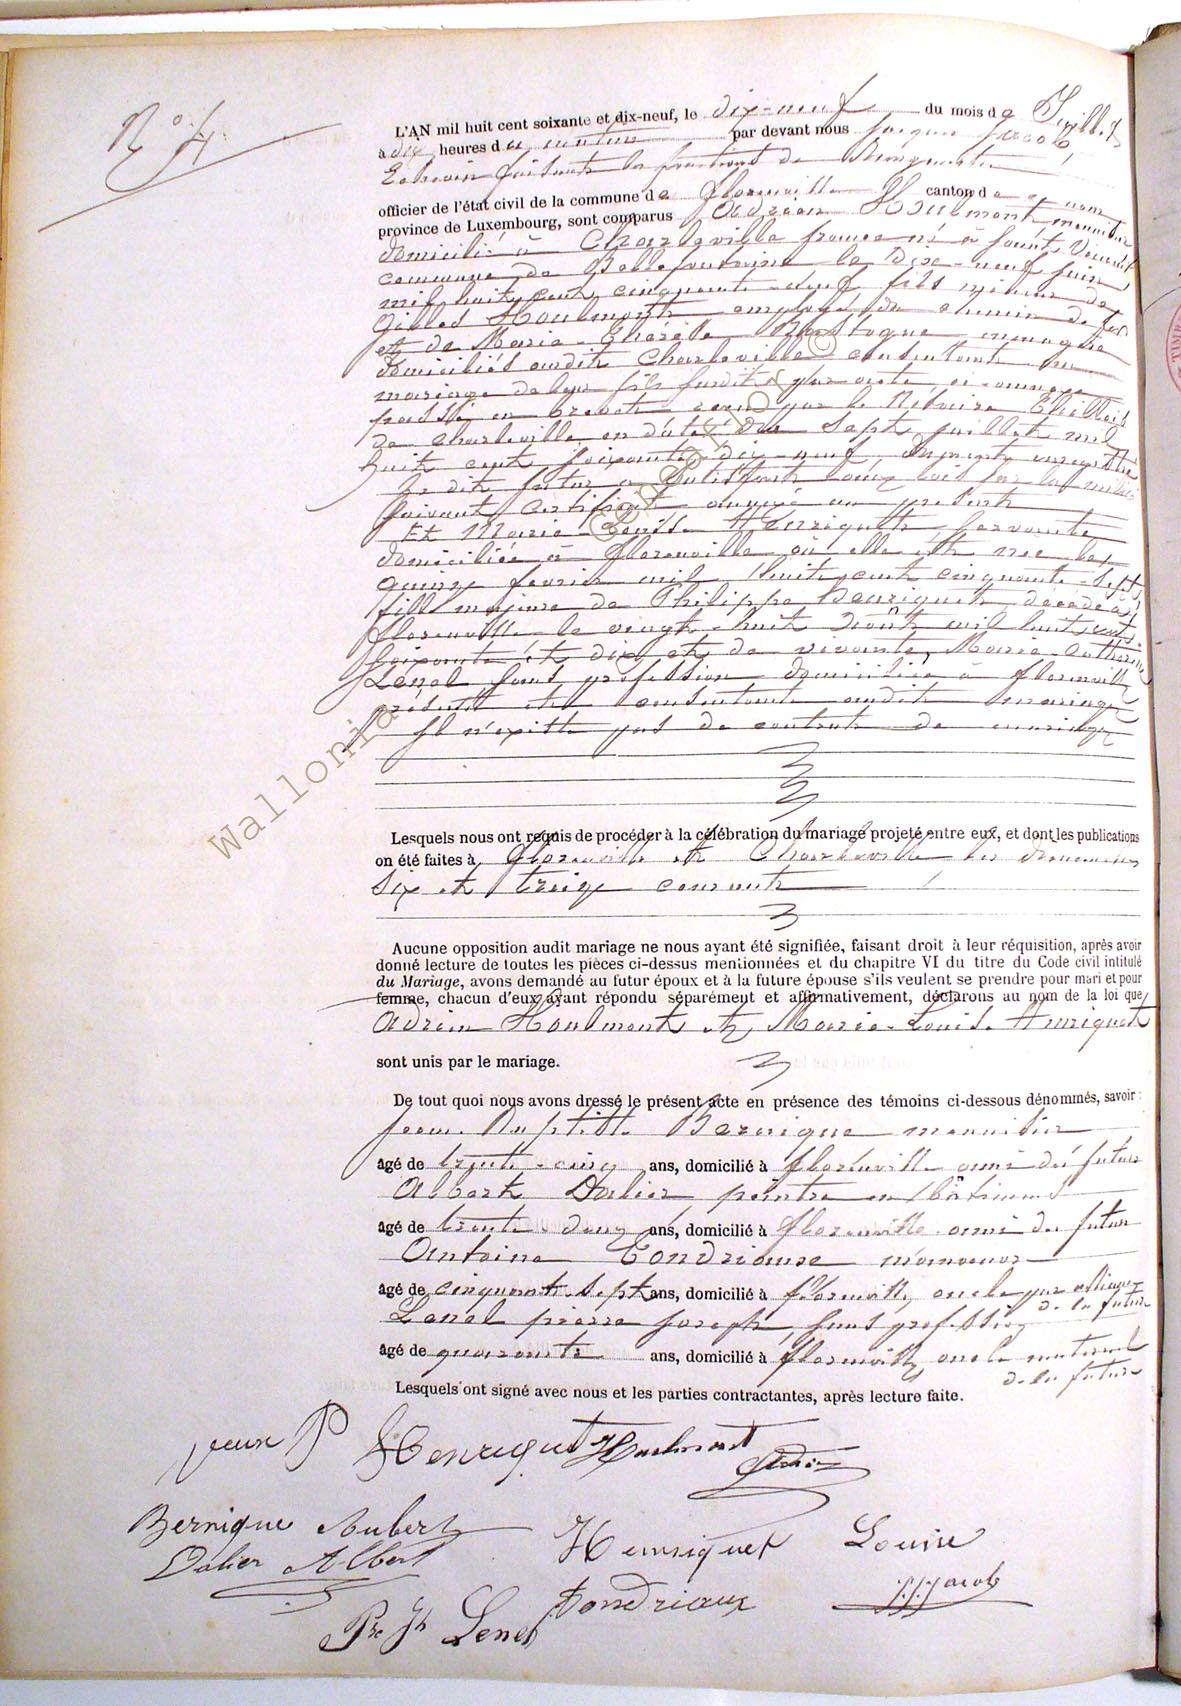 N° 4
L'AN mil huit cent soixante et dix-neuf, le dix-neuf du mois de Juillet
à dix heures du matin par devant nous Jacques Jacob,
Echevin faisant les fonctions de Bourgmestre
officier de l'état civil de la commune de Florenville canton de ce nom
province de Luxembourg, sont comparus Adrien Houlmont menuisier
domicilié à Charleville france né à Saint Vincent
commune de Bellefontaine le dix-neuf juin
mil huit cent cinquante-neuf fils mineur de
Gilles Houlmont employé du chemin de fer
et de Marie-Thérèse Bastogne ménagère
domiciliés audit Charleville consentant au
mariage de leur fils susdit par acte ci-annexé
passé en brevet reçu par le Notaire
de Charleville en date du sept juillet mil
huit cent soixante dix-neuf, dument enregistré
le dit futur a satisfait aux lois sur la milice
suivant certificat annexé au présent
Et Marie-Louise Henriquet servante
domiciliée à Florenville où elle est née le
quinze fevrier mil huit cent cinquante-sept,
fille majeure de Philippe Henriquet décédé à
Florenville le vingt-huit Août mil huit cent
soixante et dix et de vivante, Marie-Catherine
Lenel sans profession domiciliée à Florenville
présente et consentante audit mariage
Il n'existe pas de contrat de mariage
Lesquels nous ont requis de procéder à la célébration du mariage projeté entre eux, et dont les publications
on été faites à Florenville et Charleville les dimanches
six et treize courant
Aucune opposition audit mariage ne nous ayant été signifiée, faisant droit à leur réquisition, après avoir
donné lecture de toutes les pièces ci-dessus mentionnées et du chapitre VI du titre du Code civil intitulé
du Mariage, avons demandé au futur époux et à la future épouse s'ils veulent se prendre pour mari et pour
femme, chacun d'eux ayant répondu séparément et affirmativement, déclarons au nom de la loi que
Adrien Houlmont et Marie-Louise Henriquet
sont unis par le mariage.
De tout quoi nous avons dressé le présent acte en présence des témoins ci-dessous dénommés, savoir :
Jean-Baptiste Bernique menuisier
âgé de trente-cinq ans, domicilié à Florenville ami du futur
Albert Dalier peintre en bâtiment
âgé de trente deux ans, domicilié à Florenville ami du futur
Antoine Tondriaux manœuvre
âgé de cinquante sept ans, domicilié à Florenville, oncle par alliance
de la future
Lenel pierre Joseph, sans profession
âgé de quarante ans, domicilié à Florenville oncle maternel
de la future
Lesquels ont signé avec nous et les parties contractantes, après lecture faite.
veuve P Henriquet Houlmont Adrien
Bernique Aubert Henriquet Louise
Dalier Albert Tondriaux J. J. Jacob
Pre Jh Lenel
Wallonia Generation ©
TIMBR